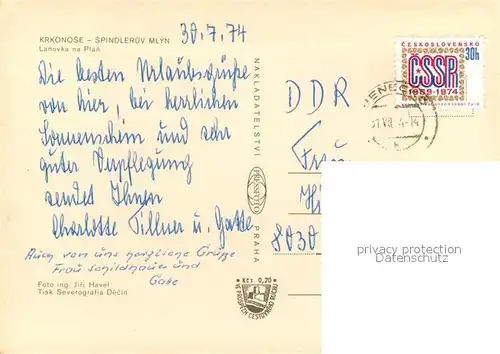 KRKONOŠE – ŠPINDLERŮV MLÝN
Lanovka na Pláň
30.7.74
Die besten Urlaubsgrüße
von hier, bei herrlichem
Sonnenschein und sehr
guter Verpflegung
sendet Ihnen
Charlotte Tillner u. Gatte
Auch von uns herzliche Grüße
Frau Schildhauer und
Gatte
Foto ing. Jiří Havel
Tisk Severografia Děčín
NAKLADATELSTVÍ
PRESSFOTO
PRAHA
ČESKOSLOVENSKO
30h
ČSSR
1974
DDR
Frau
8030
Kčs 0,20
VE PROSPĚCH CESTOVNÍHO RUCHU
privacy protection
Datenschutz